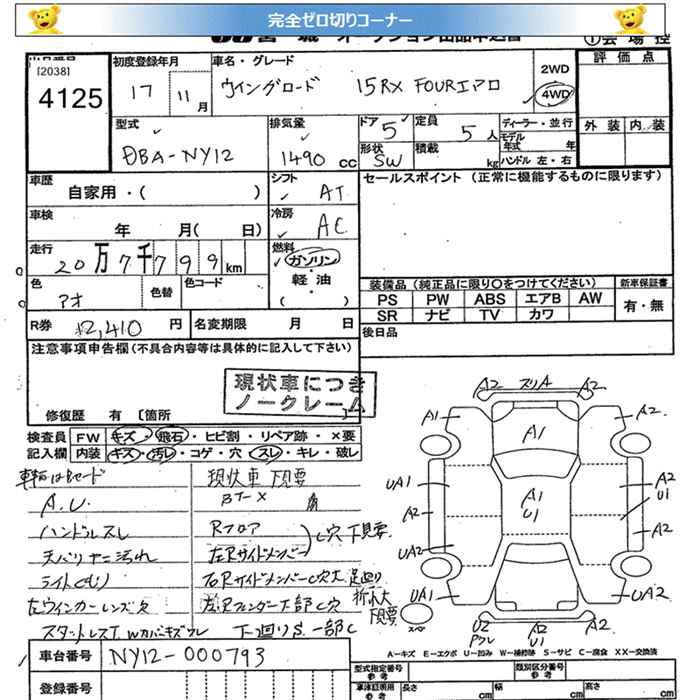 完全ゼロ切りコーナー
宮城オークション出品申込書
①会場控
[2038]
4125
初度登録年月
17 11月
車名・グレード
ウイングロード 15RX FOURエアロ
2WD
4WD
評価点
外装 内装
型式
DBA-NY12
排気量
1490 cc
ドア 5
定員 5人
形状 SW
積載 kg
ディーラー・並行
モデル年式 年
ハンドル 左・右
車歴
自家用・( )
シフト
AT
セールスポイント(正常に機能するものに限ります)
車検
年 月( 日)
冷房
AC
走行
20万7千799km
燃料
ガソリン・
軽油
( )
色
アオ
色替
色コード
装備品(純正品に限り○をつけてください)
新車保証書
PS PW ABS エアB AW
SR ナビ TV カワ
有・無
R券 ¥2,410 円
名変期限 月 日
後日品
注意事項申告欄(不具合内容等は具体的に記入して下さい)
現状車につき
ノークレーム
修復歴 有 [箇所 ]
検査員 FW キズ・飛石・ヒビ割・リペア跡・×要
記入欄 内装 キズ・汚レ・コゲ・穴・スレ・キレ・破レ
現状車 下見要
A.U.
ハンドルスレ
Rフロア
天バリヤニ汚れ
左Rサイドメンバー
C穴 下見要
ライトくもり
右RサイドメンバーC穴大
足廻り
左ウインカーレンズ欠
左Rフェンダー下部C穴
下見要
スタットレスT Wカバーキズワレ
下廻りS.一部C
A2 スリA A2
A1 A2
A1
UA1 A2
U1
A1
U1
A2 A2
UA2
UA1 UA2
スペア
U2
ワレ
A2
U1
A2
A-キズ E-エクボ U-凹み W-補修跡 S-サビ C-腐食 XX-交換済
車台番号 NY12-000793
登録番号
型式指定番号
類別区分番号
車庫証明用
参考
長さ cm
幅 cm
高さ cm